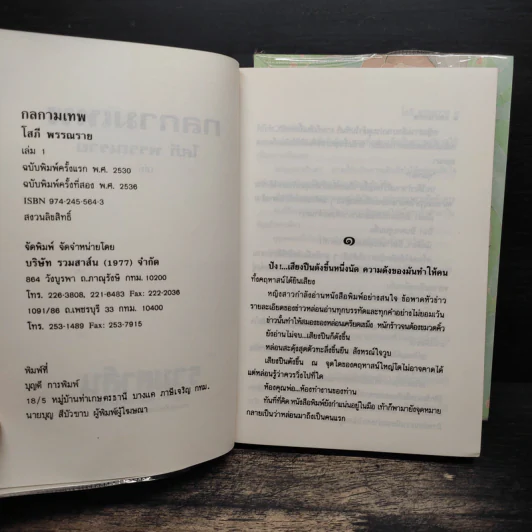 กลกามเทพ
โสภี พรรณราย
เล่ม 1
ฉบับพิมพ์ครั้งแรก พ.ศ. 2530
ฉบับพิมพ์ครั้งที่สอง พ.ศ. 2536
ISBN 974-245-564-3
สงวนลิขสิทธิ์
จัดพิมพ์ จัดจำหน่ายโดย
บริษัท รวมสาส์น (1977) จำกัด
864 วังบูรพา ถ.ภาณุรังษี กทม. 10200
โทร. 226-3808, 221-6483 Fax: 222-2036
1091/86 ถ.เพชรบุรี 33 กทม. 10400
โทร. 253-1489 Fax: 253-7915
พิมพ์ที่
บุญดี การพิมพ์
18/5 หมู่บ้านท่าเกษตรธานี บางแค ภาษีเจริญ กทม.
นายบุญ สีบัวขาบ ผู้พิมพ์ผู้โฆษณา
๑
ปัง !...เสียงปืนดังขึ้นหนึ่งนัด ความดังของมันทำให้คน
ทั้งคฤหาสน์ได้ยินเสียง
หญิงสาวกำลังอ่านหนังสือพิมพ์อย่างสนใจ ข้อพาดหัวข่าว
รายละเอียดของข่าวหล่อนอ่านทุกบรรทัดและทุกคำอย่างไม่ยอมเว้น
ข่าวนั้นทำให้สมองของหล่อนเครียดเสมือ หนักร้าวจนต้องขมวดคิ้ว
ยังอ่านไม่จบ...เสียงปืนก็ดังขึ้น
หล่อนสะดุ้งสุดตัวทะลึ่งขึ้นยืน สังหรณ์ใจวูบ
เสียงปืนดังขึ้น ณ จุดใดของคฤหาสน์ใหญ่โตไม่อาจคาดได้
แต่หล่อนรู้ว่าควรวิ่งไปที่ใด
ห้องคุณพ่อ...ห้องทำงานของท่าน
ทันทีที่คิด หนังสือพิมพ์ยังกำแน่นอยู่ในมือ เท้าก็พามายังจุดหมาย
กลายเป็นว่าหล่อนมาถึงเป็นคนแรก